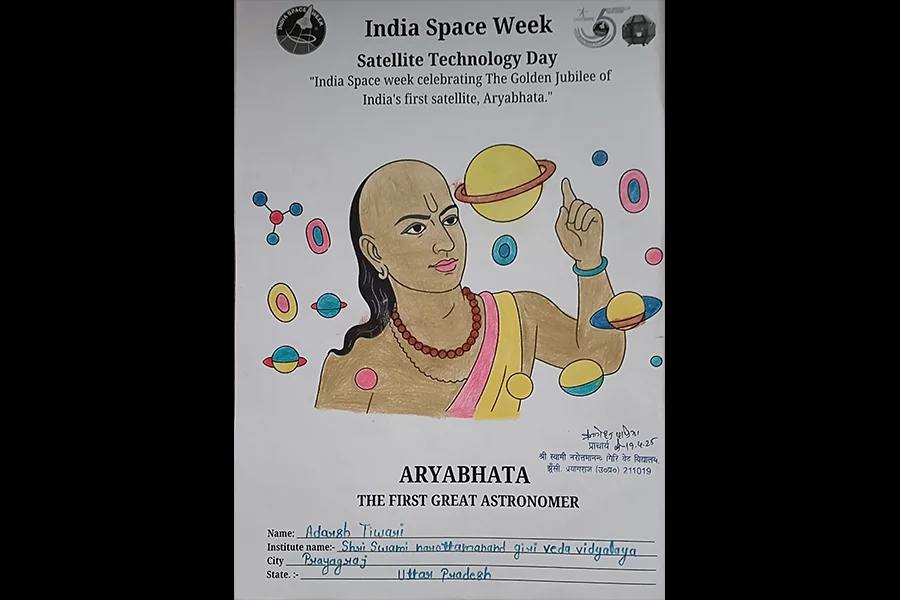 INDIA SPACE WEEK
India Space Week
Satellite Technology Day
"India Space week celebrating The Golden Jubilee of
India's first satellite, Aryabhata."
19.4.25
प्राचार्य
श्री स्वामी नरोत्तमानन्द गिरि वेद विद्यालय
झूँसी, प्रयागराज (उ०प्र०) 211019
ARYABHATA
THE FIRST GREAT ASTRONOMER
Name: Adarsh Tiwari
Institute name:- Shri Swami narottamanand giri veda vidyalaya
City Prayagraj
State. :- Uttar Pradesh